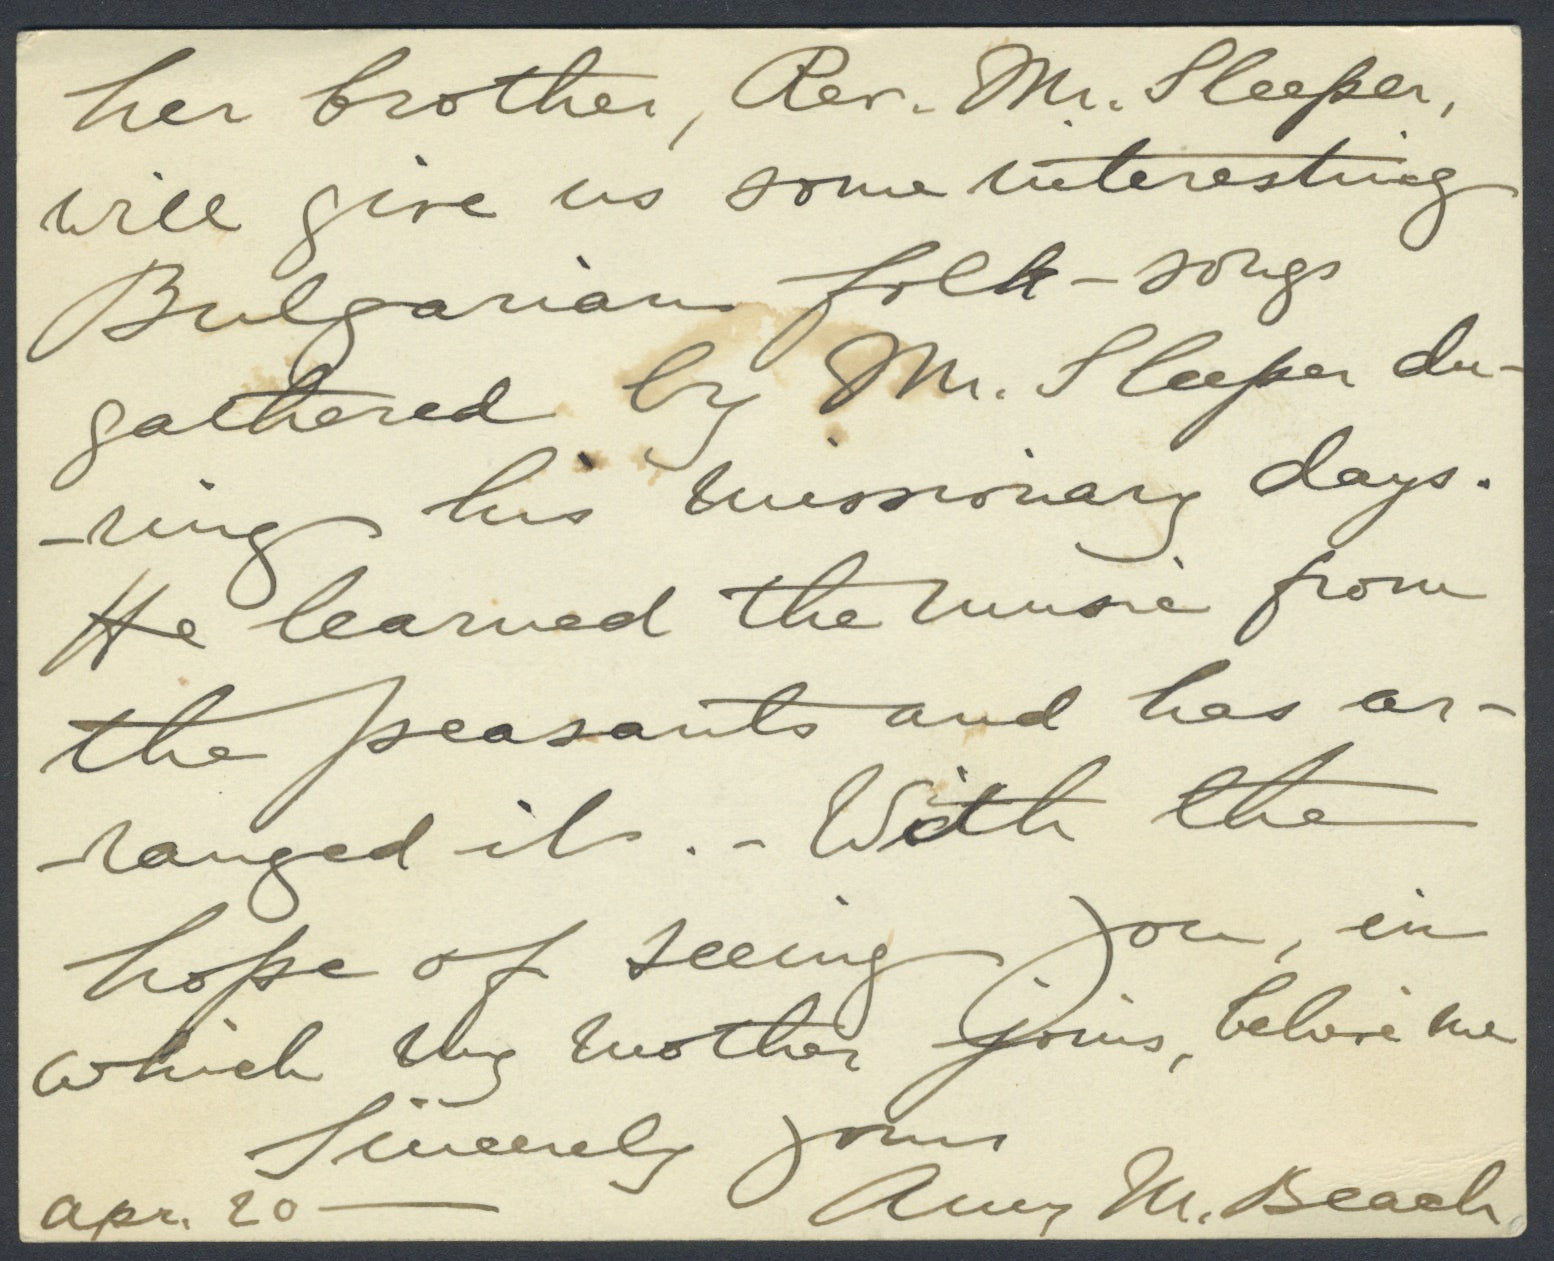 her brother, Rev. Mr. Sleeper,
will give us some interesting
Bulgarian folk-songs
gathered by Mr. Sleeper du-
-ring his missionary days.
He learned the music from
the peasants and has ar-
-ranged it. - With the
hope of seeing you, in
which my mother joins, believe me
Sincerely yours
Amy M. Beach
Apr. 20 —